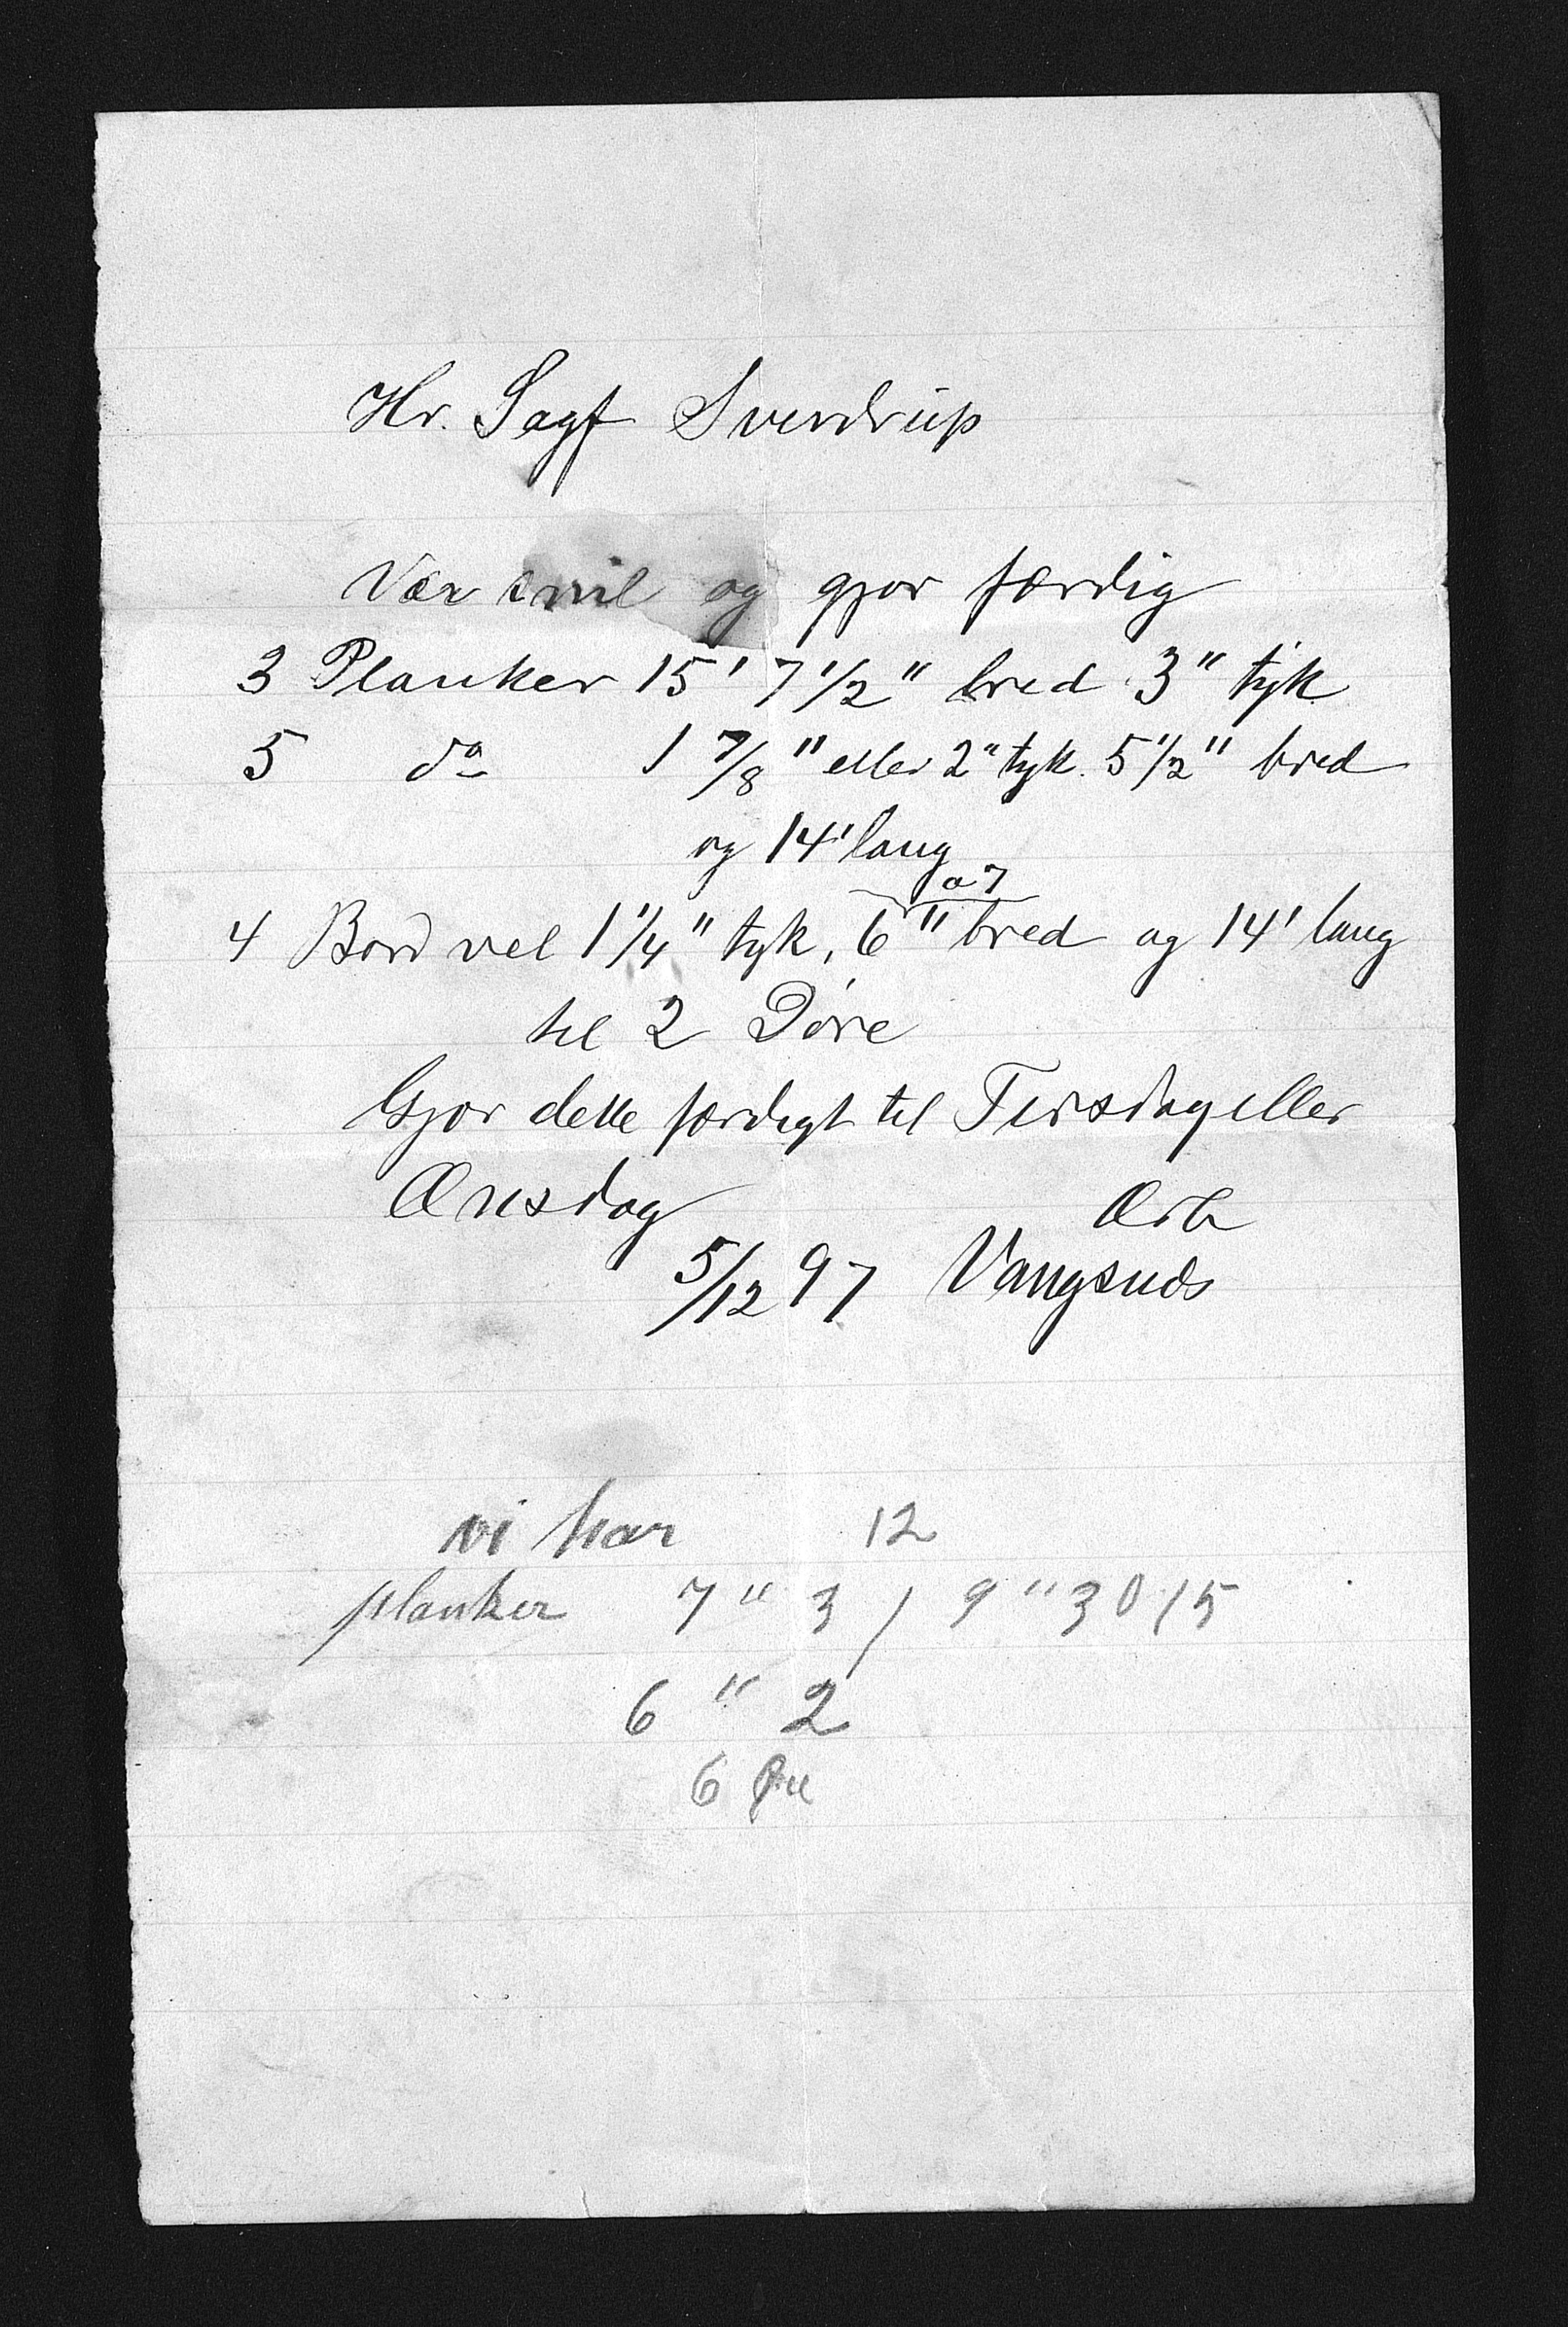 Hr. Sagf Sverdrup
Vær snil og gjør færdig
3 Planker 15' 7 1/2" bred 3" tyk
5 do 1 7/8" eller 2" tyk. 5 1/2" bred
og 14' lang
a 7
4 Bord vel 1 1/4" tyk, 6" bred og 14' lang
til 2 Døre
Gjør dette færdigt til Tirsdag eller
Onsdag
Ærb
5/12 97 Vangsnes
vi har 12
planker 7" 3 / 9" 3 0 15
6" 2
6